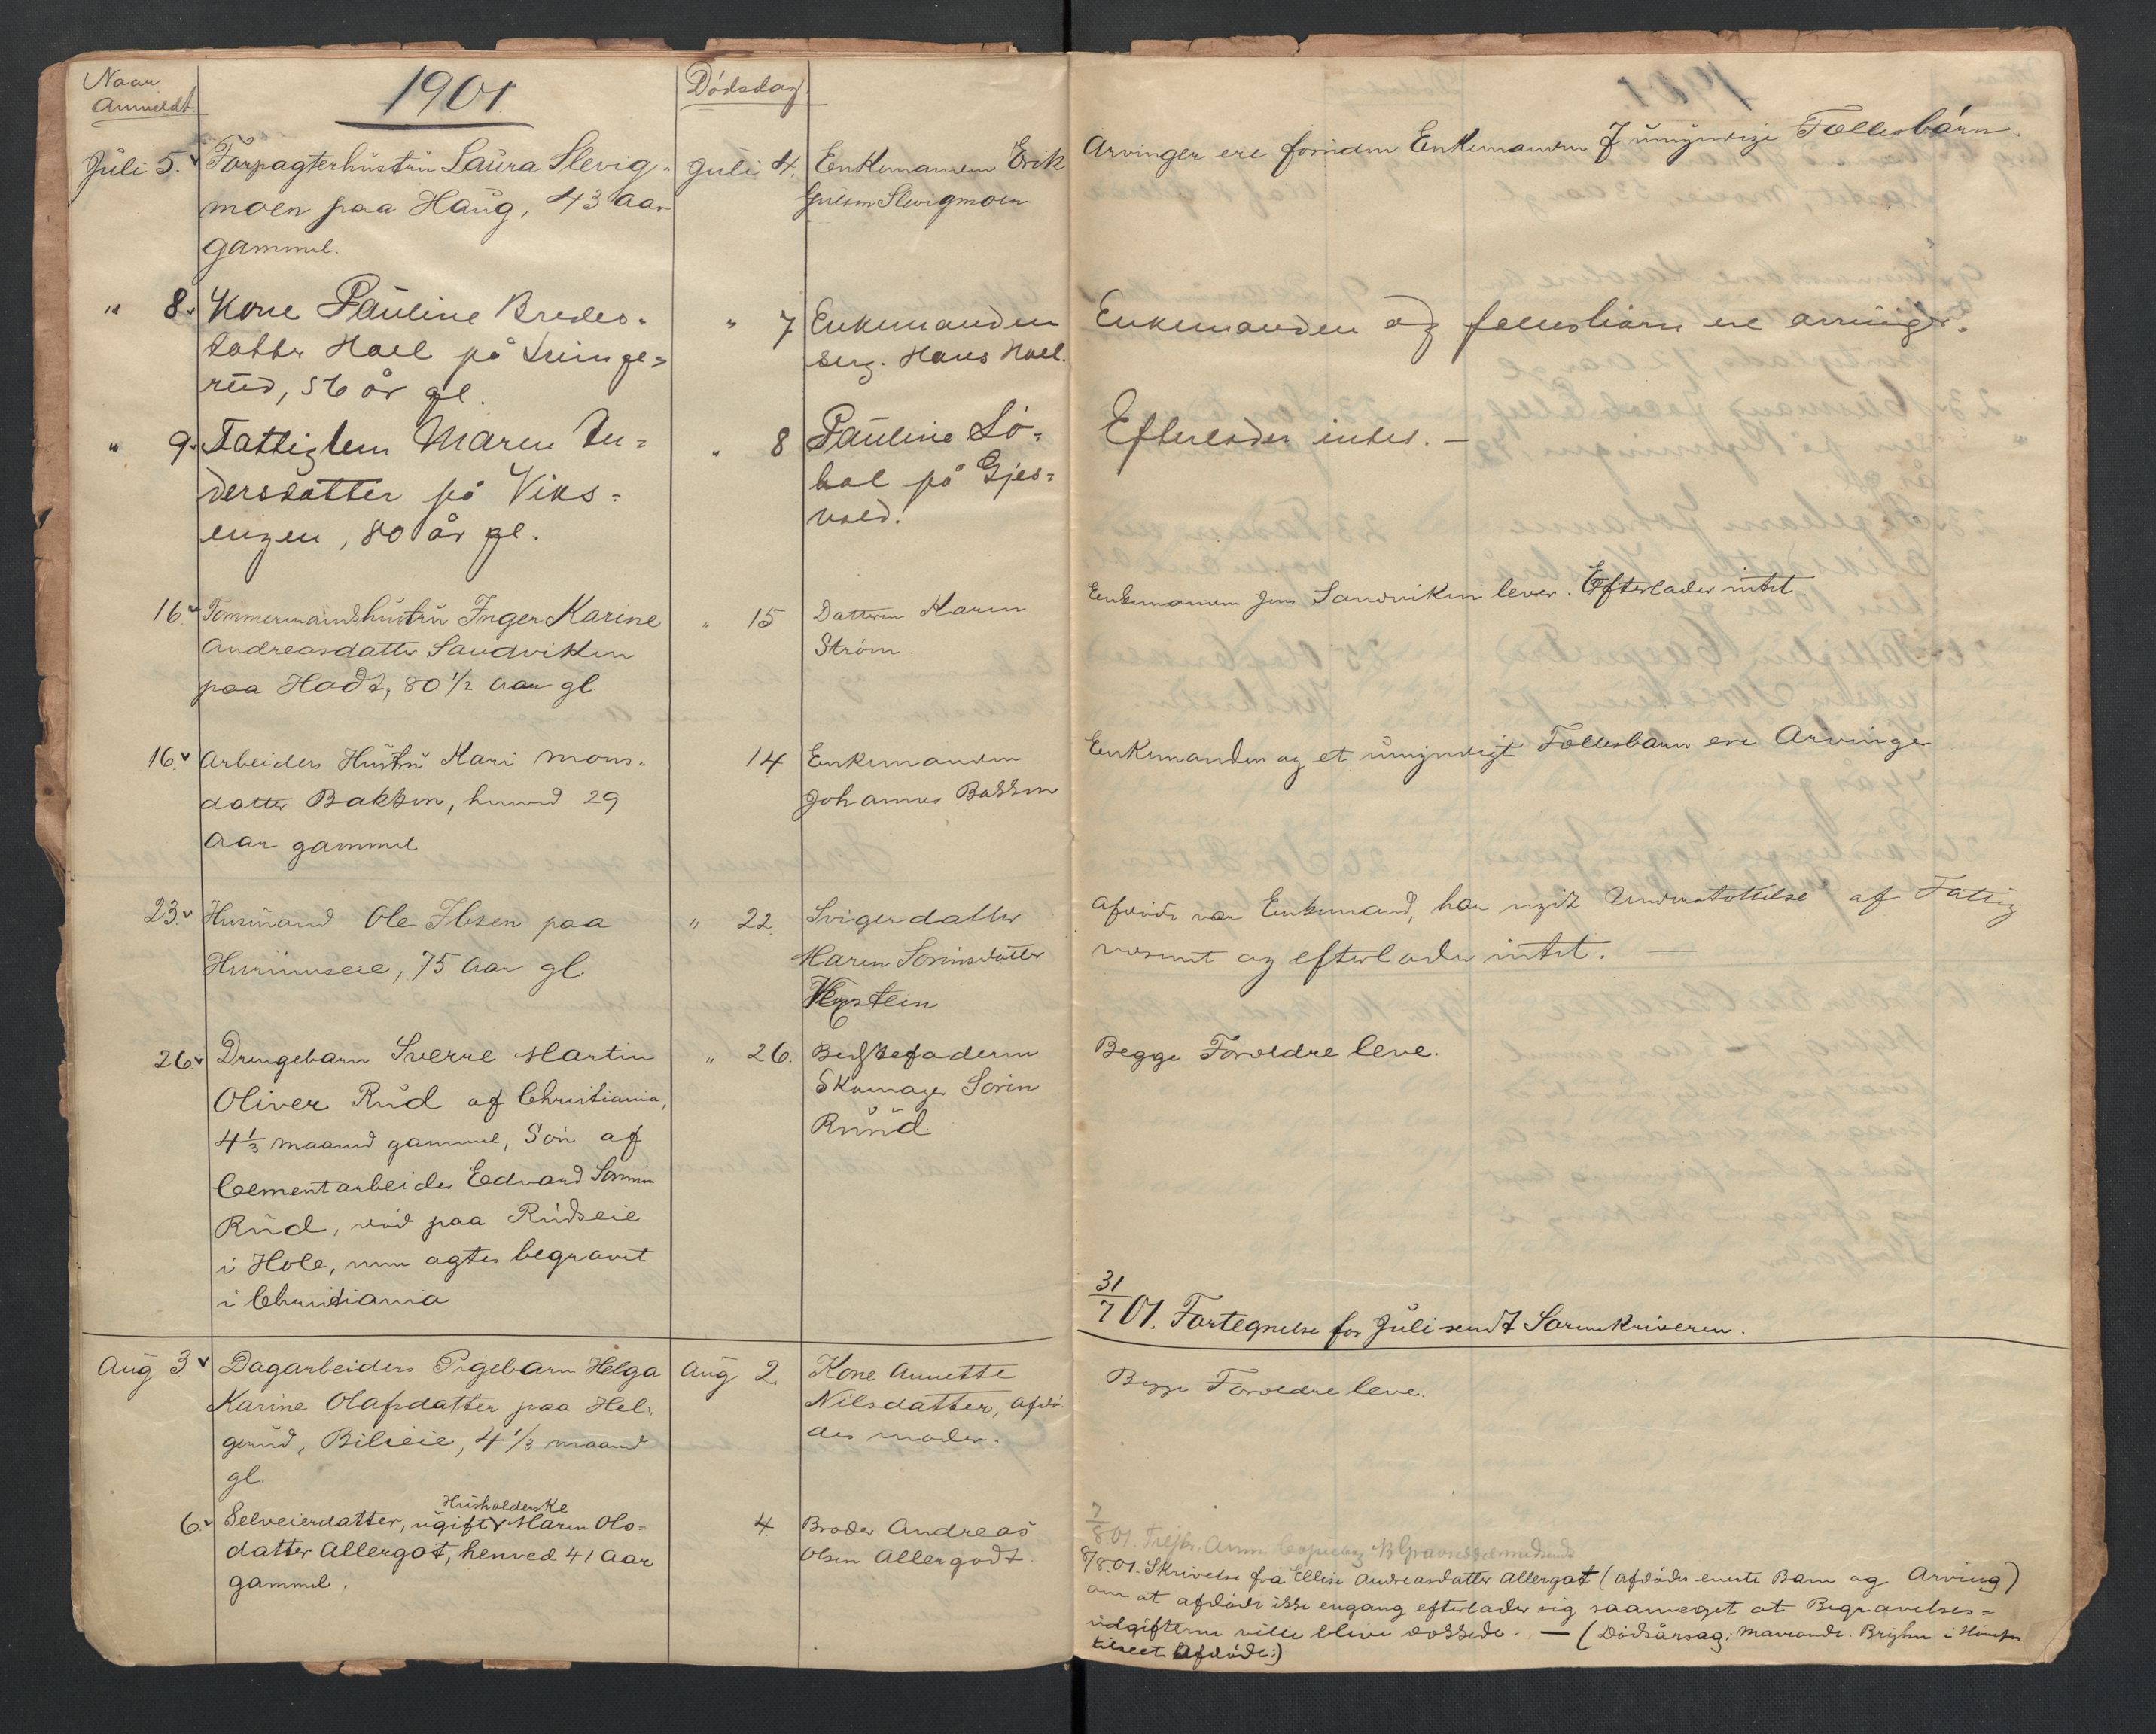 Naar
Anmeldt.
1901
Dödsdag.
Juli 5. Forpagterhustru Laura Slevig-
moen paa Haug, 43 Aar
gammel.
Juli 4. Enkemanden Erik
Slevigmoen
Arvinger ere foruden Enkemanden 7 umyndige Fællesbørn.
" 8. Kone Pauline Bredes-
datter Hoel på
rud, 56 år gl.
" 7 Enkemanden
serg. Hans Hoel.
Enkemanden og fællesbørn ere arvinger.
" 9. Fattiglem Maren An-
dersdatter på Viks-
engen, 80 år gl.
" 8 Pauline Lö-
hol på Gjes-
vold.
Efterlader intet. —
16. Tømmermandshustru Inger Karine
Andreasdatter Sandvikken
paa Hadt, 80 1/2 Aar gl.
" 15 Datteren Karen
Strøm.
Enkemanden Jens Sandviken lever. Efterlader intet
16. Arbeiders Hustru Kari Mons-
datter Bakken, henved 29
Aar gammel
14 Enkemanden
Johannes Bakken
Enkemanden og et umyndigt Fællesbarn ere Arvinge
23. Husmand Ole Ibsen paa
75 Aar gl.
" 22. Svigerdatter
Maren Sørensdatter
Afdöde var Enkemand, har nydt Understøttelse af Fattig
væsenet og efterlader intet. —
26. Drengebarn Sverre Martin
Oliver Rud af Christiania,
4 1/3 maaned gammel, Sön af
Cementarbeider Edvard Sørensen
Rud, död paa Rudseie
i Hole, men agtes begravet
i Christiania
" 26. Bedstefaderen
Skomager Søren
Ruud.
Begge Forældre leve.
31/7 01. Fortegnelse for Juli sendt Sorenskriveren.
Aug 3 Dagarbeiders Pigebarn Helga
Karine Olafsdatter paa Hel-
gerud, Bilieie, 4 1/3 maaned
gl.
Aug 2. Kone Annette
Nilsdatter, afdö-
des moder.
Begge Forældre leve.
Husholderske
6. Selveierdatter, ugift Maren Ols-
datter Allergot, henved 41 Aar
gammel.
4. Broder Andreas
Olsen Allergodt.
7/8 01.
8/8.01. Skrivelse fra Ellise Andreasdatter Allergot (afdödes eneste Barn og Arving)
om at afdöde ikke engang efterlader sig saameget at Begravelses-
udgifterne ville blive dækkede. — (Dödsårsag: Brijhn i
tilseet Afdöde.)